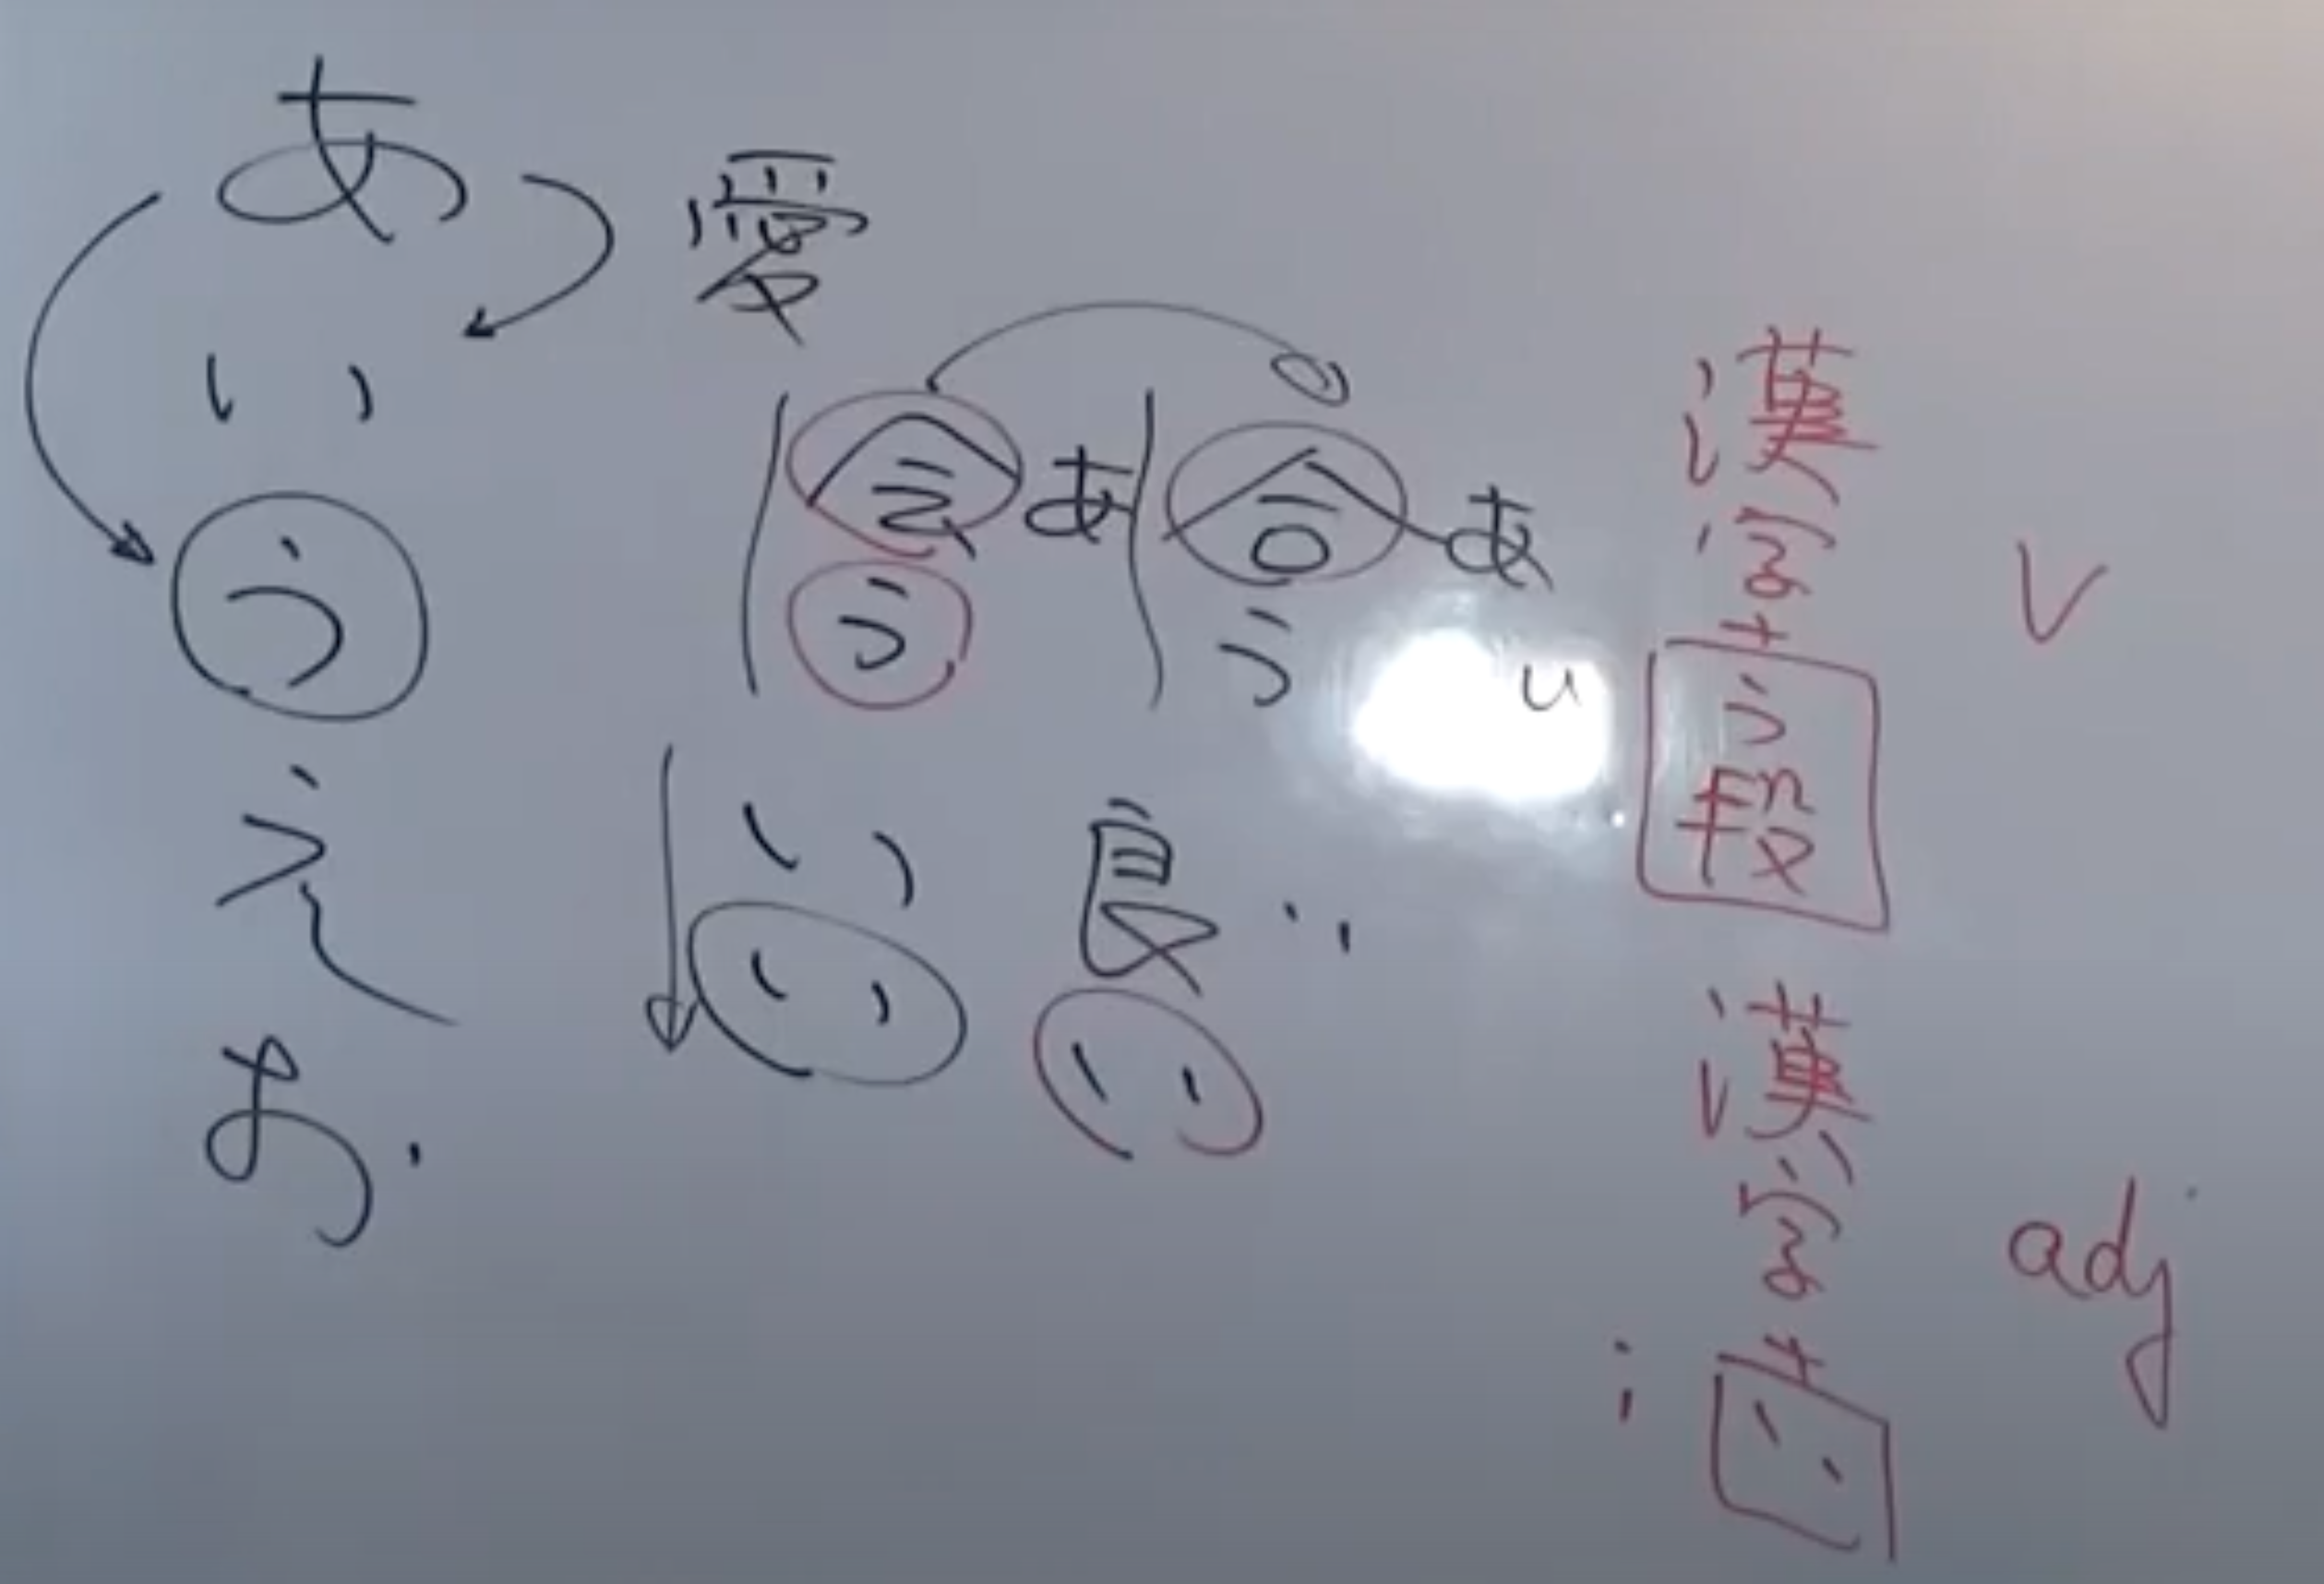 あ
い
う
え
お
愛
会う
あ
合う
あ
u
いい
良い
い
漢字+う段
V
漢字+い
adj
i